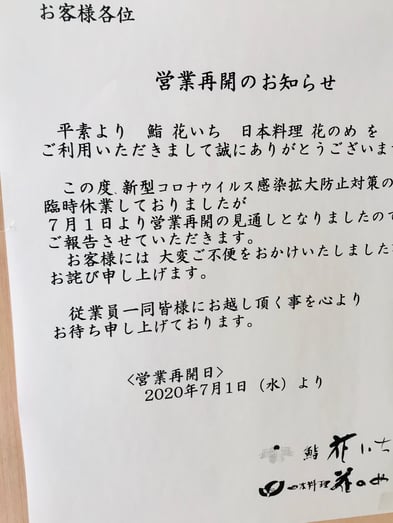 お客様各位
営業再開のお知らせ
平素より 鮨 花いち 日本料理 花のめ を
ご利用いただきまして誠にありがとうございま
この度、新型コロナウイルス感染拡大防止対策の
臨時休業しておりましたが
７月１日より営業再開の見通しとなりましたので
ご報告させていただきます。
お客様には 大変ご不便をおかけいたしました
お詫び申し上げます。
従業員一同皆様にお越し頂く事を心より
お待ち申し上げております。
<営業再開日>
2020年7月1日（水）より
鮨 花いち
日本料理 花のめ